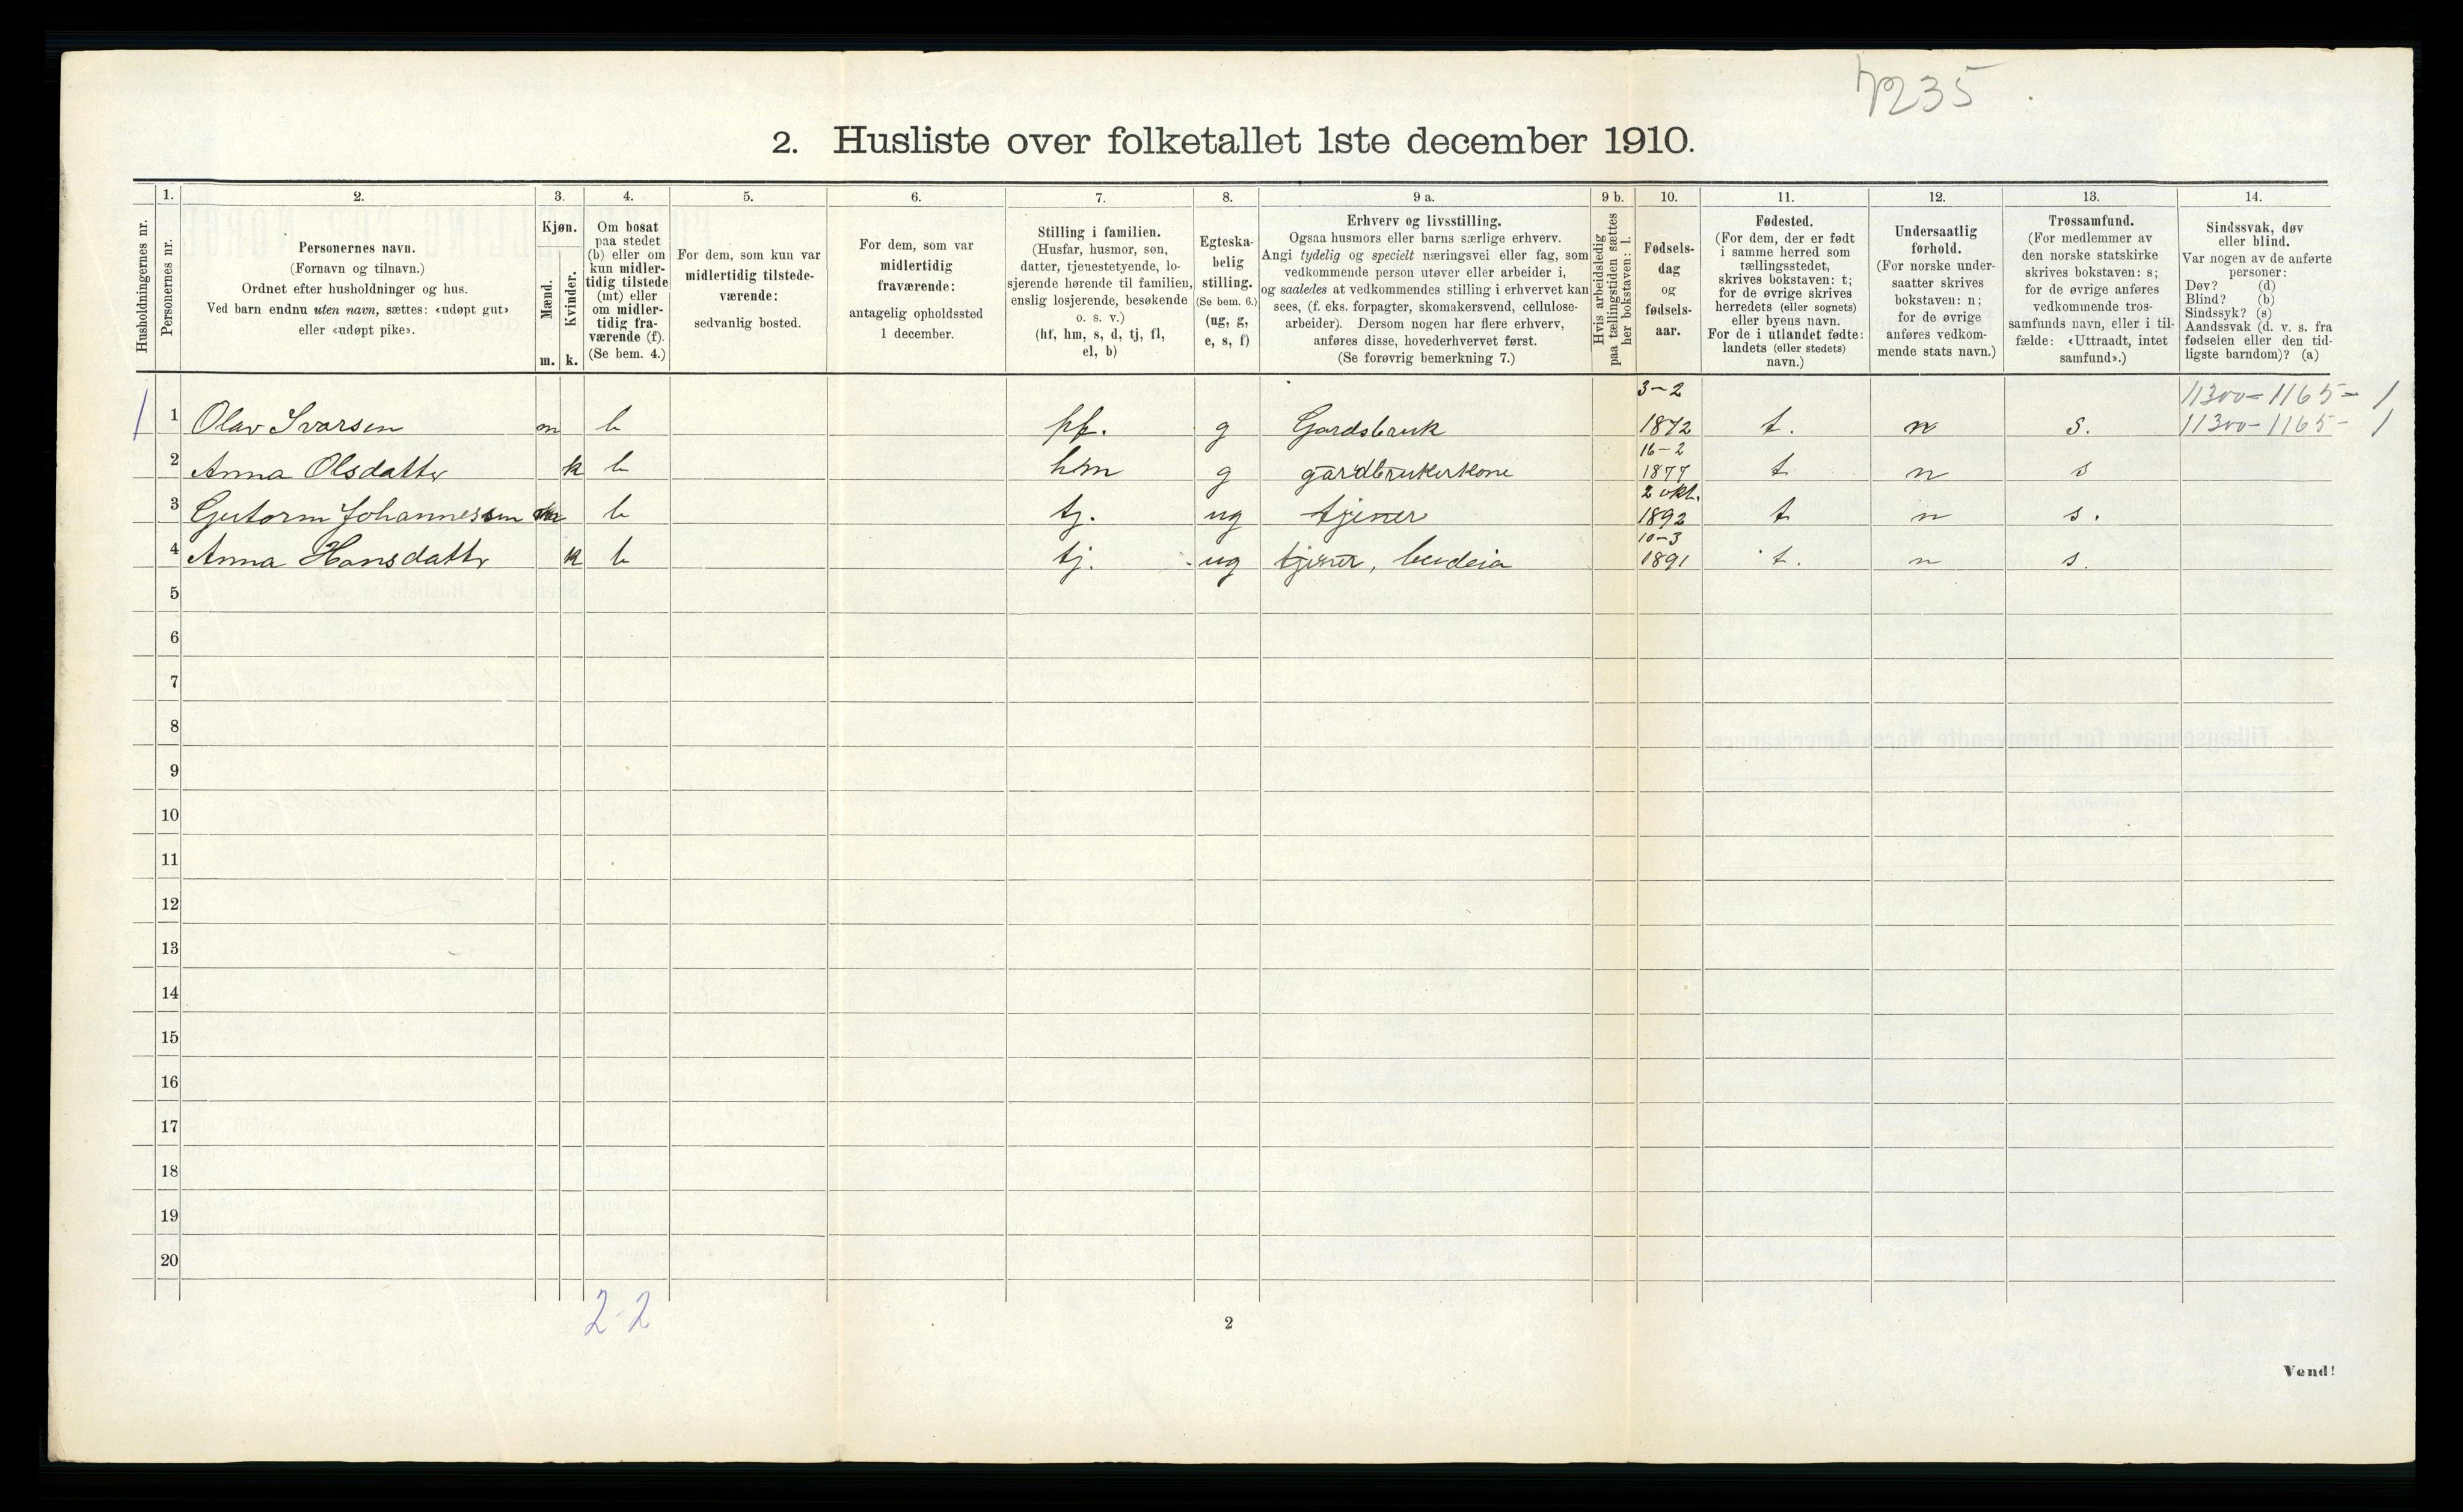 7235
2. Husliste over folketallet 1ste december 1910.
Husholdningernes nr.
1.
Personernes nr.
2.
Personernes navn.
(Fornavn og tilnavn.)
Ordnet efter husholdninger og hus.
Ved barn endnu uten navn, sættes: «udøpt gut»
eller «udøpt pike».
3.
Kjøn.
Mænd.
Kvinder.
m. k.
4.
Om bosat
paa stedet
(b) eller om
kun midler-
tidig tilstede
(mt) eller
om midler-
tidig fra-
værende (f).
(Se bem. 4.)
5.
For dem, som kun var
midlertidig tilstede-
værende:
sedvanlig bosted.
6.
For dem, som var
midlertidig
fraværende:
antagelig opholdssted
1 december.
7.
Stilling i familien.
(Husfar, husmor, søn,
datter, tjenestetyende, lo-
sjerende hørende til familien,
enslig losjerende, besøkende
o. s. v.)
(hf, hm, s, d, tj, fl,
el, b)
8.
Egteska-
belig
stilling.
(Se bem. 6.)
(ug, g,
e, s, f)
9 a.
Erhverv og livsstilling.
Ogsaa husmors eller barns særlige erhverv.
Angi tydelig og specielt næringsvei eller fag, som
vedkommende person utøver eller arbeider i,
og saaledes at vedkommendes stilling i erhvervet kan
sees, (f. eks. forpagter, skomakersvend, cellulose-
arbeider). Dersom nogen har flere erhverv,
anføres disse, hovederhvervet først.
(Se forøvrig bemerkning 7.)
9 b.
Hvis arbeidsledig
paa tællingstiden sættes
her bokstaven: l.
10.
Fødsels-
dag
og
fødsels-
aar.
11.
Fødested.
(For dem, der er født
i samme herred som
tællingsstedet,
skrives bokstaven: t;
for de øvrige skrives
herredets (eller sognets)
eller byens navn.
For de i utlandet fødte:
landets (eller stedets)
navn.)
12.
Undersaatlig
forhold.
(For norske under-
saatter skrives
bokstaven: n;
for de øvrige
anføres vedkom-
mende stats navn.)
13.
Trossamfund.
(For medlemmer av
den norske statskirke
skrives bokstaven: s;
for de øvrige anføres
vedkommende tros-
samfunds navn, eller i til-
fælde: «Uttraadt, intet
samfund».)
14.
Sindssvak, døv
eller blind.
Var nogen av de anførte
personer:
Døv? (d)
Blind? (b)
Sindssyk? (s)
Aandssvak (d. v. s. fra
fødselen eller den tid-
ligste barndom)? (a)
3-2 11300-1165-1
1 1 Olav Ivarsen m b hf. g Gardsbruk 1872 t. n s. 11300-1165-1
16-2
2 Anna Olsdatter k b hm g gardbrukerkone 1877 t n s
2 okt.
3 Gutorm Johannessen m b tj. ug tjener 1892 t n s.
10-3
4 Anna Hansdatter k b tj. ug tjener, budeia 1891 t. n s.
5
6
7
8
9
10
11
12
13
14
15
16
17
18
19
20
2-2
2
Vend!